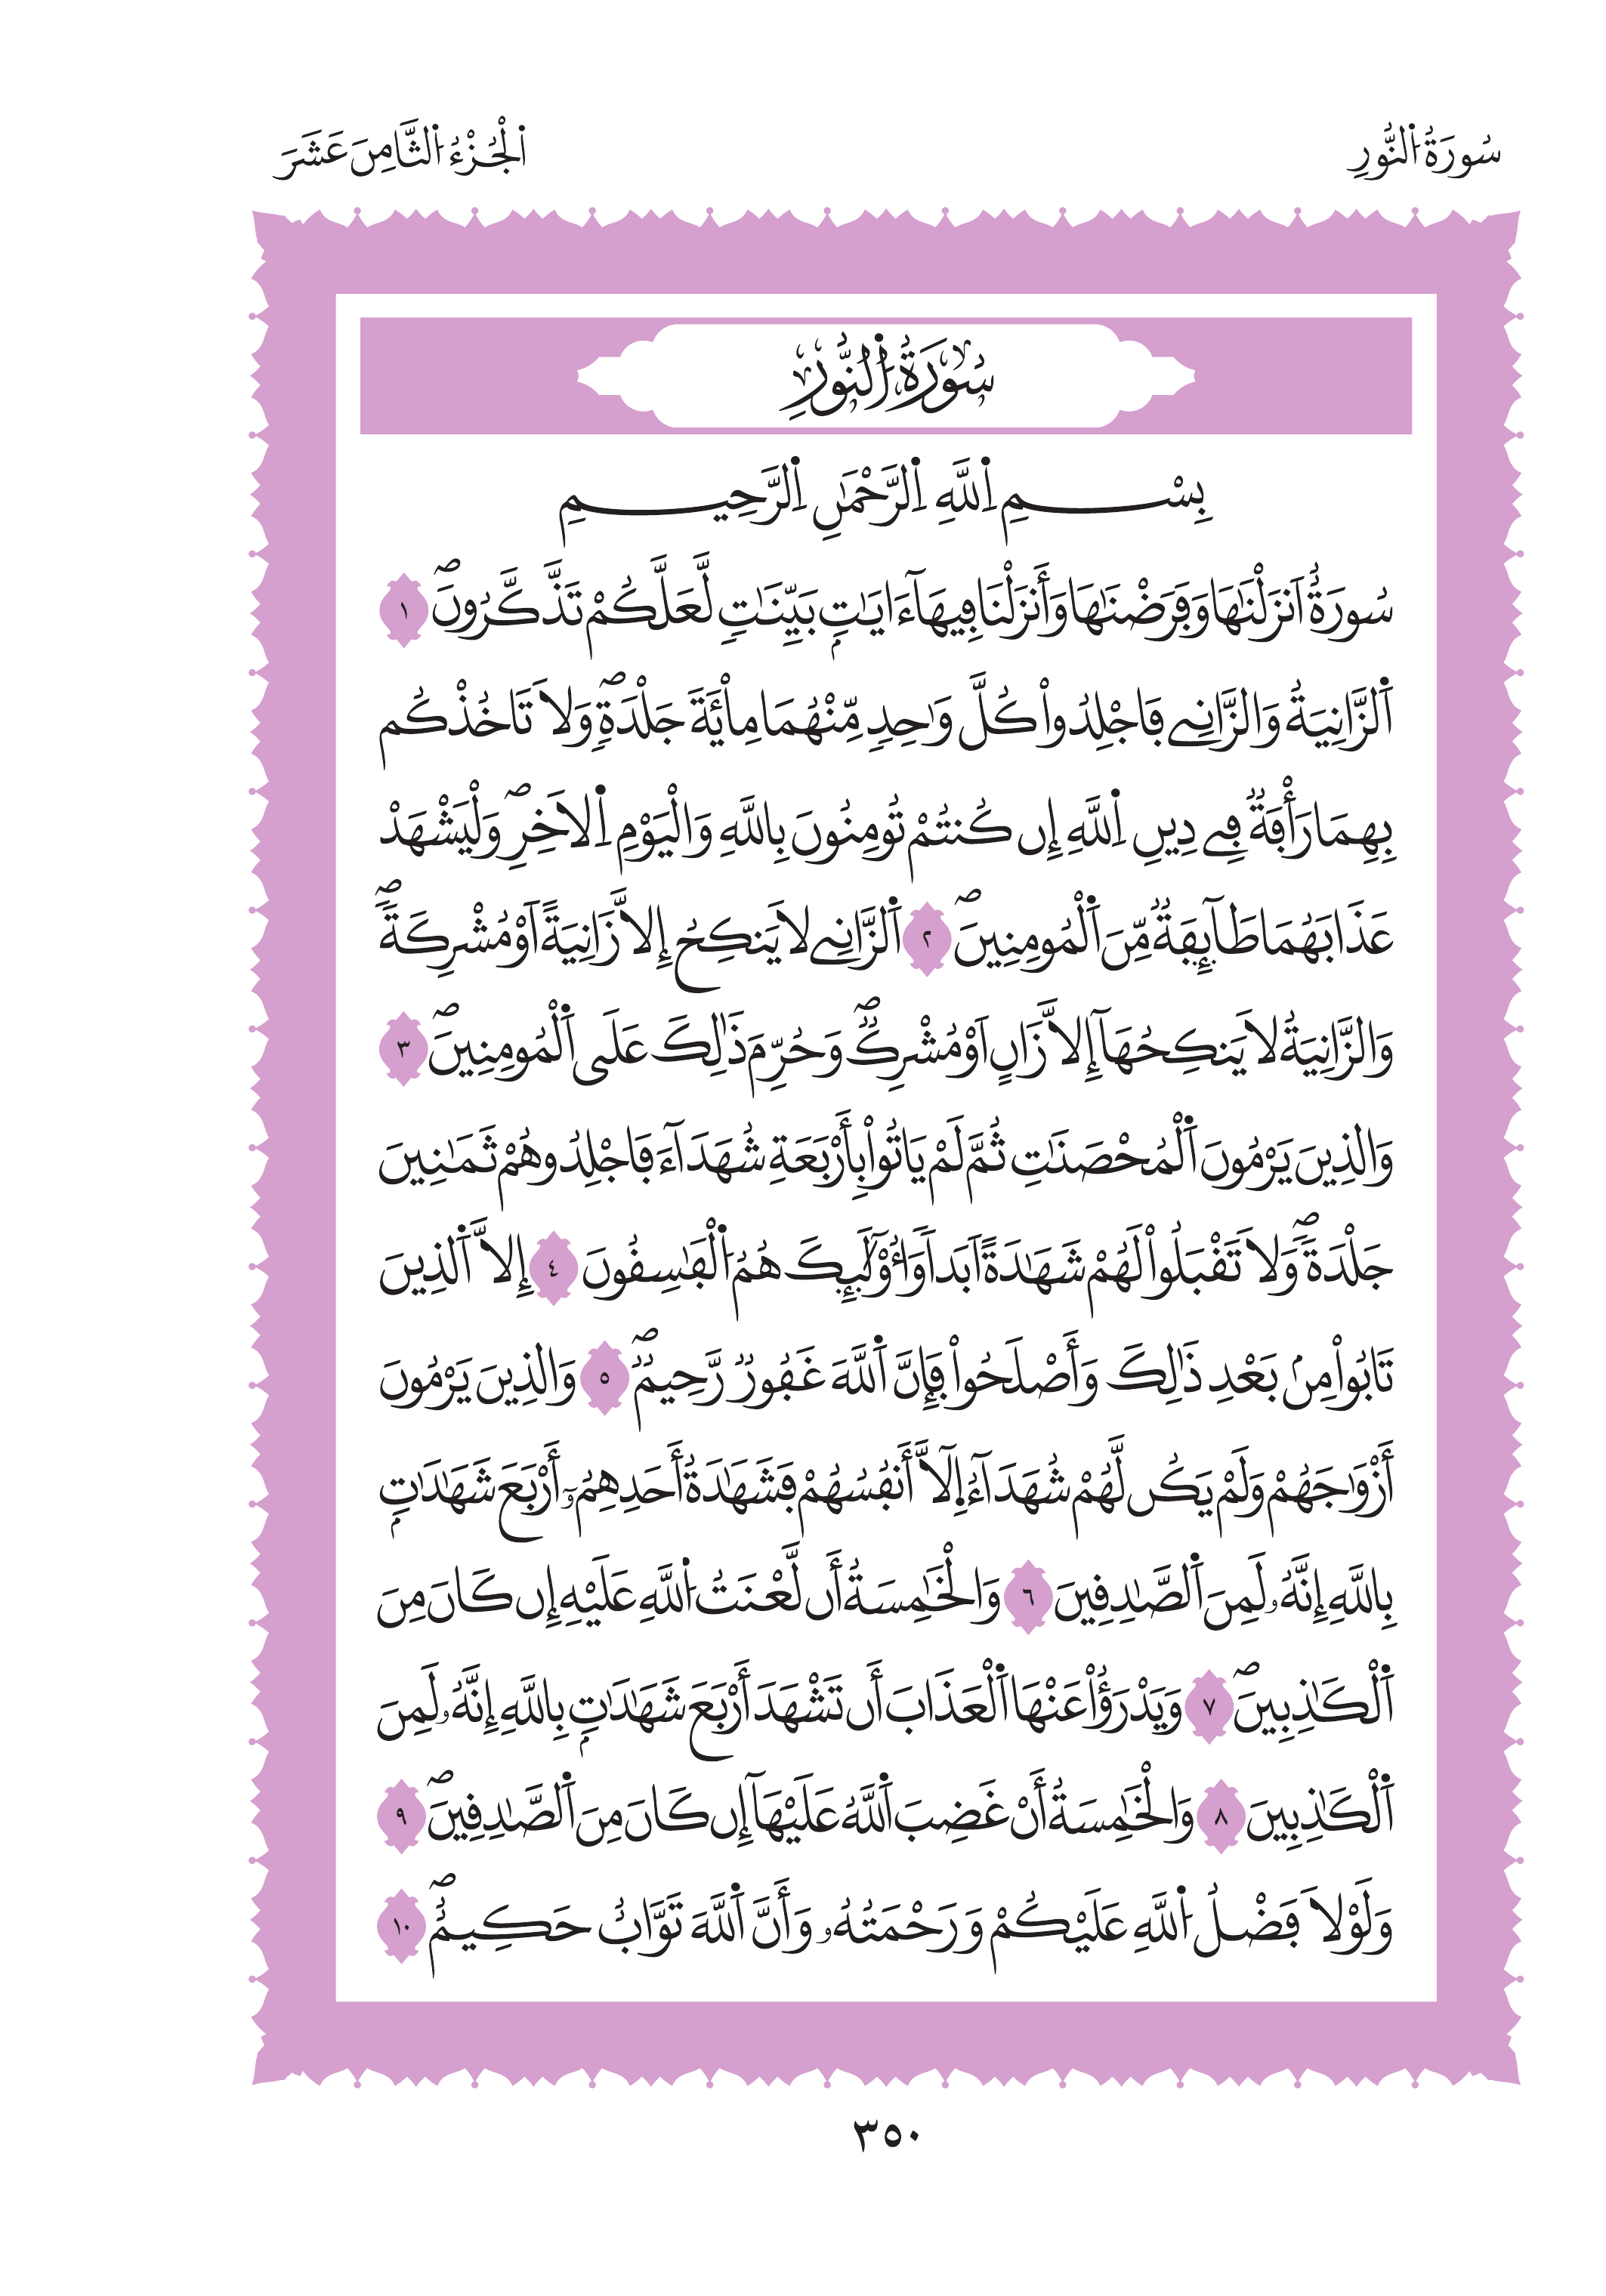 سُورَةُ اُ۬لنُّورِ
اُ۬لْجُزْءُ اُ۬لثَّامِنَ عَشَرَ
سُورَةُ اُ۬لنُّورِ
بِسْمِ اِ۬للَّهِ اِ۬لرَّحْمَٰنِ اِ۬لرَّحِيمِ
سُورَةٌ اَنزَلْنَٰهَا وَفَرَضْنَٰهَا وَأَنزَلْنَا فِيهَآ ءَايَٰتِۢ بَيِّنَٰتٖ لَّعَلَّكُمْ تَذَّكَّرُونَۖ ١
اَ۬لزَّانِيَةُ وَالزَّانِے فَاجْلِدُواْ كُلَّ وَٰحِدٖ مِّنْهُمَا مِاْئَةَ جَلْدَةٖۖ وَلَا تَاخُذْكُم
بِهِمَا رَأْفَةٞ فِے دِينِ اِ۬للَّهِ إِن كُنتُمْ تُومِنُونَ بِاللَّهِ وَالْيَوْمِ اِ۬لَاخِرِۖ وَلْيَشْهَدْ
عَذَابَهُمَا طَآئِفَةٞ مِّنَ اَ۬لْمُومِنِينَۖ ٢ اَ۬لزَّانِے لَا يَنكِحُ إِلَّا زَانِيَةً اَوْ مُشْرِكَةٗۖ
وَالزَّانِيَةُ لَا يَنكِحُهَآ إِلَّا زَانٍ اَوْ مُشْرِكٞۖ وَحُرِّمَ ذَٰلِكَ عَلَى اَ۬لْمُومِنِينَۖ ٣
وَالذِينَ يَرْمُونَ اَ۬لْمُحْصَنَٰتِ ثُمَّ لَمْ يَاتُواْ بِأَرْبَعَةِ شُهَدَآءَ فَاجْلِدُوهُمْ ثَمَٰنِينَ
جَلْدَةٗۖ وَلَا تَقْبَلُواْ لَهُمْ شَهَٰدَةً اَبَداٗ وَأُوْلَٰٓئِكَ هُمُ اُ۬لْفَٰسِقُونَ ٤ إِلَّا اَ۬لذِينَ
تَابُواْ مِنۢ بَعْدِ ذَٰلِكَ وَأَصْلَحُواْ فَإِنَّ اَ۬للَّهَ غَفُورٞ رَّحِيمٞۖ ٥ وَالذِينَ يَرْمُونَ
أَزْوَٰجَهُمْ وَلَمْ يَكُن لَّهُمْ شُهَدَآءُ اِ۪لَّآ أَنفُسُهُمْ فَشَهَٰدَةُ أَحَدِهِمُۥٓ أَرْبَعَ شَهَٰدَٰتِۢ
بِاللَّهِ إِنَّهُۥ لَمِنَ اَ۬لصَّٰدِقِينَ ٦ وَالْخَٰمِسَةُ أَن لَّعْنَتُ اُ۬للَّهِ عَلَيْهِ إِن كَانَ مِنَ
اَ۬لْكَٰذِبِينَۖ ٧ وَيَدْرَؤُاْ عَنْهَا اَ۬لْعَذَابَ أَن تَشْهَدَ أَرْبَعَ شَهَٰدَٰتِۢ بِاللَّهِ إِنَّهُۥ لَمِنَ
اَ۬لْكَٰذِبِينَ ٨ وَالْخَٰمِسَةُ أَنْ غَضِبَ اَ۬للَّهُ عَلَيْهَآ إِن كَانَ مِنَ اَ۬لصَّٰدِقِينَۖ ٩
وَلَوْلَا فَضْلُ اُ۬للَّهِ عَلَيْكُمْ وَرَحْمَتُهُۥ وَأَنَّ اَ۬للَّهَ تَوَّابٌ حَكِيمٌۖ ١٠
٣٥٠